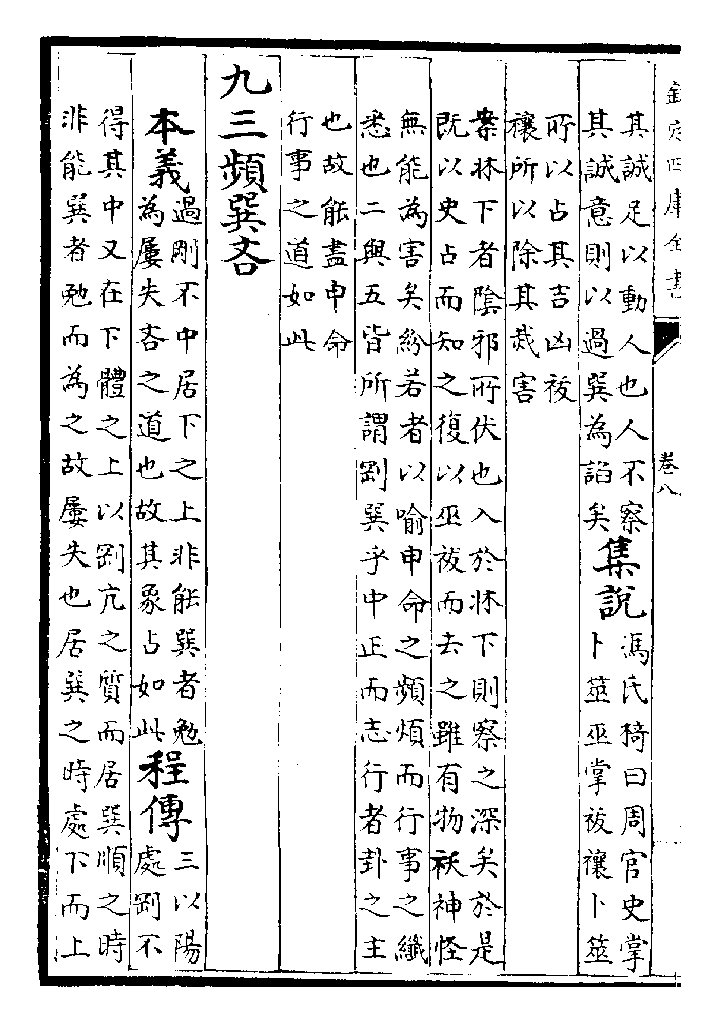 欽定四庫全書 卷八
其誠足以動人也人不察
其誠意則以過巽為諂矣
集說
馮氏椅曰周官史掌
卜筮巫掌祓禳卜筮
所以占其吉凶祓
禳所以除其烖害
案牀下者陰邪所伏也入於牀下則察之深矣於是
既以史占而知之復以巫祓而去之雖有物祅神怪
無能為害矣紛若者以喻申命之頻煩而行事之纖
悉也二與五皆所謂剛巽乎中正而志行者卦之主
也故能盡申命
行事之道如此
九三頻巽吝
本義
過剛不中居下之上非能巽者勉
為屢失吝之道也故其象占如此
程傳
三以陽
處剛不
得其中又在下體之上以剛亢之質而居巽順之時
非能巽者勉而為之故屢失也居巽之時處下而上